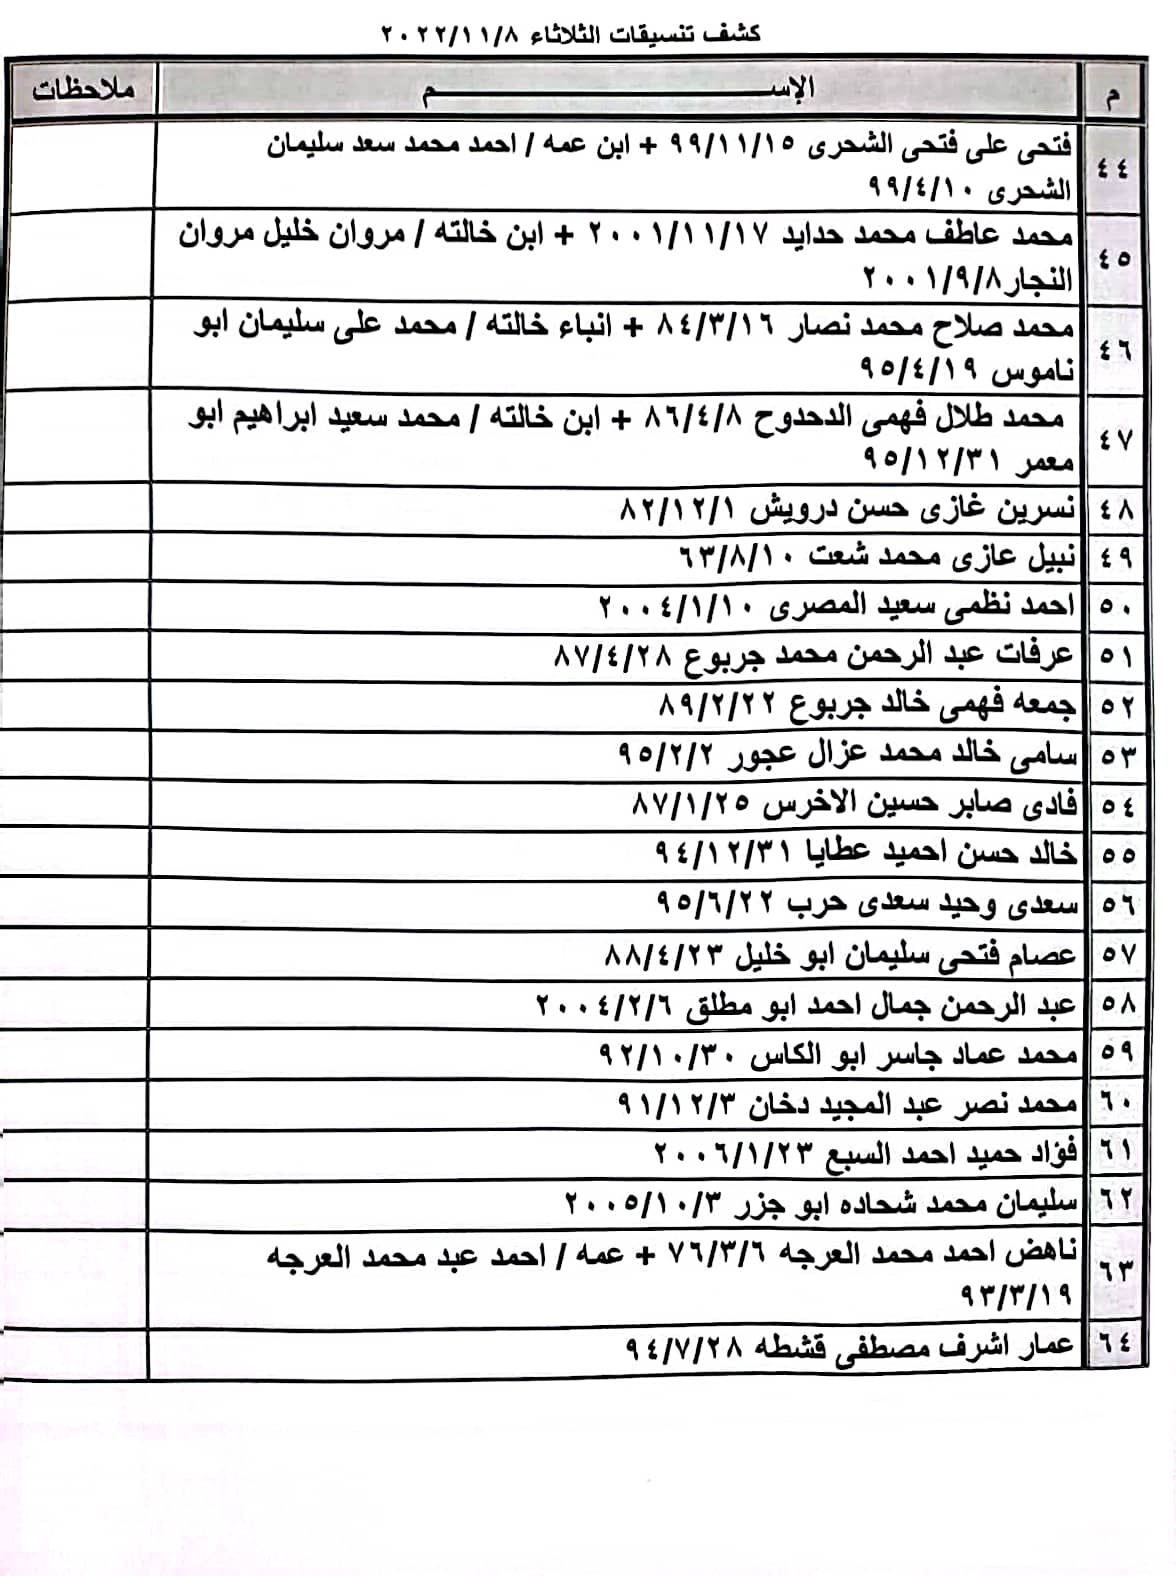 كشف تنسيقات الثلاثاء ٢٠٢٢/١١/٨
م الإســـــــم ملاحظات
٤٤ فتحى على فتحى الشحرى ٩٩/١١/١٥ + ابن عمه / احمد محمد سعد سليمان
الشحرى ٩٩/٤/١٠
٤٥ محمد عاطف محمد حدايد ٢٠٠١/١١/١٧ + ابن خالته / مروان خليل مروان
النجار٢٠٠١/٩/٨
٤٦ محمد صلاح محمد نصار ٨٤/٣/١٦ + انباء خالته / محمد على سليمان ابو
ناموس ٩٥/٤/١٩
٤٧ محمد طلال فهمى الدحدوح ٨٦/٤/٨ + ابن خالته / محمد سعيد ابراهيم ابو
معمر ٩٥/١٢/٣١
٤٨ نسرين غازى حسن درويش ٨٢/١٢/١
٤٩ نبيل عازى محمد شعت ٦٣/٨/١٠
٥٠ احمد نظمى سعيد المصرى ٢٠٠٤/١/١٠
٥١ عرفات عبد الرحمن محمد جربوع ٨٧/٤/٢٨
٥٢ جمعه فهمى خالد جربوع ٨٩/٢/٢٢
٥٣ سامى خالد محمد عزال عجور ٩٥/٢/٢
٥٤ فادى صابر حسين الاخرس ٨٧/١/٢٥
٥٥ خالد حسن احميد عطايا ٩٤/١٢/٣١
٥٦ سعدى وحيد سعدى حرب ٩٥/٦/٢٢
٥٧ عصام فتحى سليمان ابو خليل ٨٨/٤/٢٣
٥٨ عبد الرحمن جمال احمد ابو مطلق ٢٠٠٤/٢/٦
٥٩ محمد عماد جاسر ابو الكاس ٩٢/١٠/٣٠
٦٠ محمد نصر عبد المجيد دخان ٩١/١٢/٣
٦١ فؤاد حميد احمد السبع ٢٠٠٦/١/٢٣
٦٢ سليمان محمد شحاده ابو جزر ٢٠٠٥/١٠/٣
٦٣ ناهض احمد محمد العرجه ٧٦/٣/٦ + عمه / احمد عبد محمد العرجه
٩٣/٣/١٩
٦٤ عمار اشرف مصطفى قشطه ٩٤/٧/٢٨